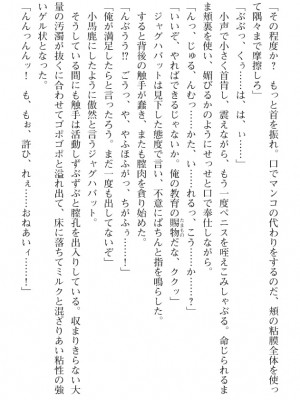 その程度か？　もっと首を振れ。口でマンコの代わりをするのだ、頬の粘膜全体を使っ
て隅々まで摩擦しろ」
「ぶぷっ、くぅ……は、はぃ……」
小声で小さく首肯し、震えながら、もう一度ペニスを咥えこみしゃぶる。命じられるま
ま頬裏を使い、媚びるかのようにせっせと口で奉仕しながら。
「んっ、じゅる、んむっ……かた、い……れるっ、こう……か……？」
「いいぞ、やればできるじゃないか。俺の教育の賜物だな、ククッ」
ジャグハバットは見下した態度で言い、不意にぱちんと指を鳴らした。
すると背後の触手が蠢き、またも膣肉を貪り始めた。
「んぶうう!?　ごうっ、や、やふほふがっ、ちがふぅ……！」
「俺が満足したらと言ったろう。まだ一度も出してないぞ」
小馬鹿にしたように傲然と言うジャグハバット。
そうしている間にも触手は活動しずぶずぶと膣孔を出入りしている。収まりきらない大
量の汚濁が抜くに合わせてゴポゴポと溢れ出て、床に落ちてミルクと混ざりあい粘性の強
いゲル状となった。
「んんっんんっ！　も、もぉ、許ひ、れぇ……おねあいィ……！」